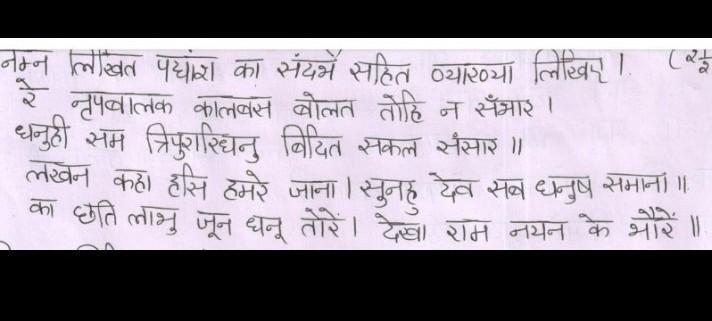 निम्न लिखित पद्यांश का संदर्भ सहित व्याख्या लिखिए। (2½
रे नृपबालक कालबस बोलत तोहि न सँभार।
धनुही सम त्रिपुरारिधनु बिदित सकल संसार॥
लखन कहा हसि हमरे जाना। सुनहु देव सब धनुष समाना॥
का छति लाभु जून धनू तोरें। देखा राम नयन के भोरें॥